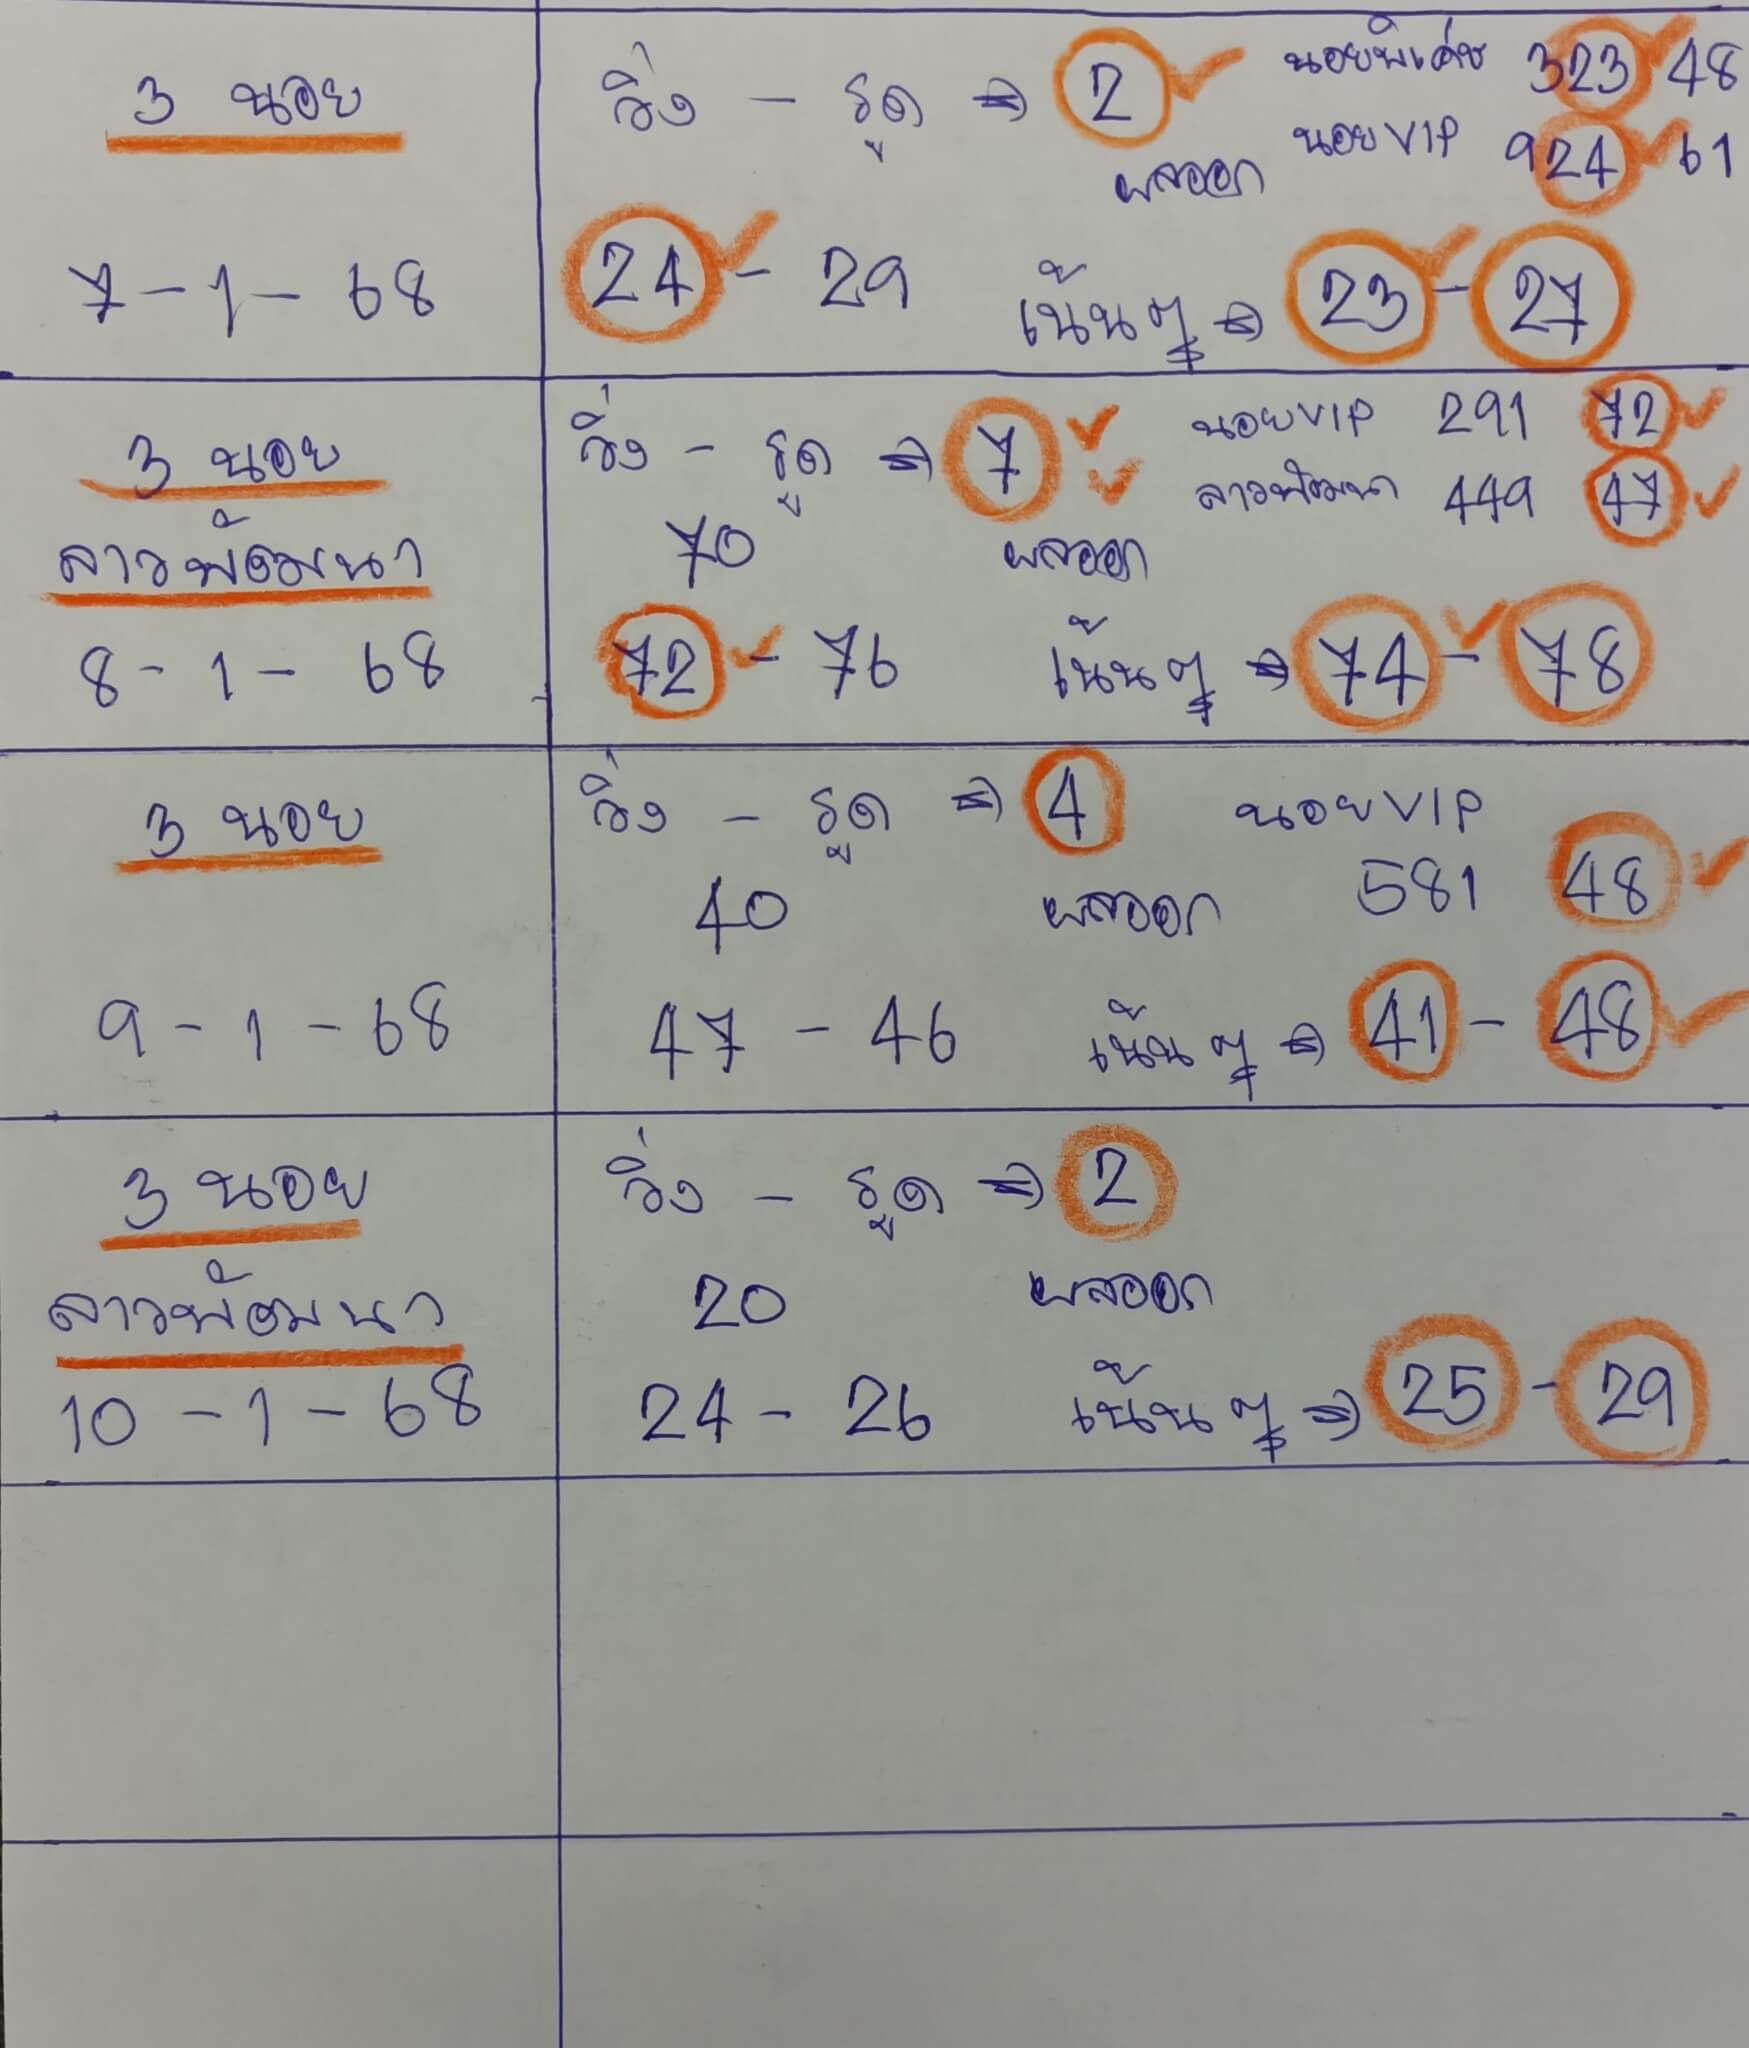 3 นอย
วิ่ง - รูด ⇒ 2 ✓
นอยพิเศษ 323 ✓ 48
นอย VIP 924 ✓ 61
ผลออก
7 - 1 - 68
24 ✓ - 29
เน้นๆ ⇒ 23 ✓ - 27
3 นอย
ลาวพัฒนา
วิ่ง - รูด ⇒ 7 ✓ ✓
นอย VIP 291 72 ✓
ลาวพัฒนา 449 47 ✓
70
ผลออก
8 - 1 - 68
72 ✓ - 76
เน้นๆ ⇒ 74 ✓ - 78
3 นอย
วิ่ง - รูด ⇒ 4
นอย VIP
40
ผลออก
581 48 ✓
9 - 1 - 68
47 - 46
เน้นๆ ⇒ 41 - 48 ✓
3 นอย
ลาวพัฒนา
วิ่ง - รูด ⇒ 2
20
ผลออก
10 - 1 - 68
24 - 26
เน้นๆ ⇒ 25 - 29